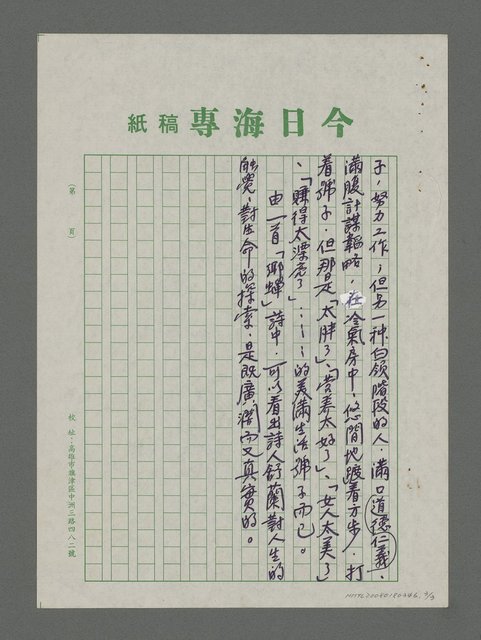 今日海專稿紙
子，努力工作；但另一種白領階段的人，滿口道德仁義、
滿腹計謀韜略，在冷氣房中，悠閒地踱着方步，打
着嗝子，但那是「太胖了」、「營養太好了」、「女人太美了」
、「賺得太漂亮了」……的美滿生活嗝子而已。
由一首「鄉蟬」詩中，可以看出詩人舒蘭對人生的
觸覺，對生命的探索，是既廣闊而又真實的。
（第　頁）
校址：高雄市旗津區中洲三路四八二號
NMTL20040180446 3/3